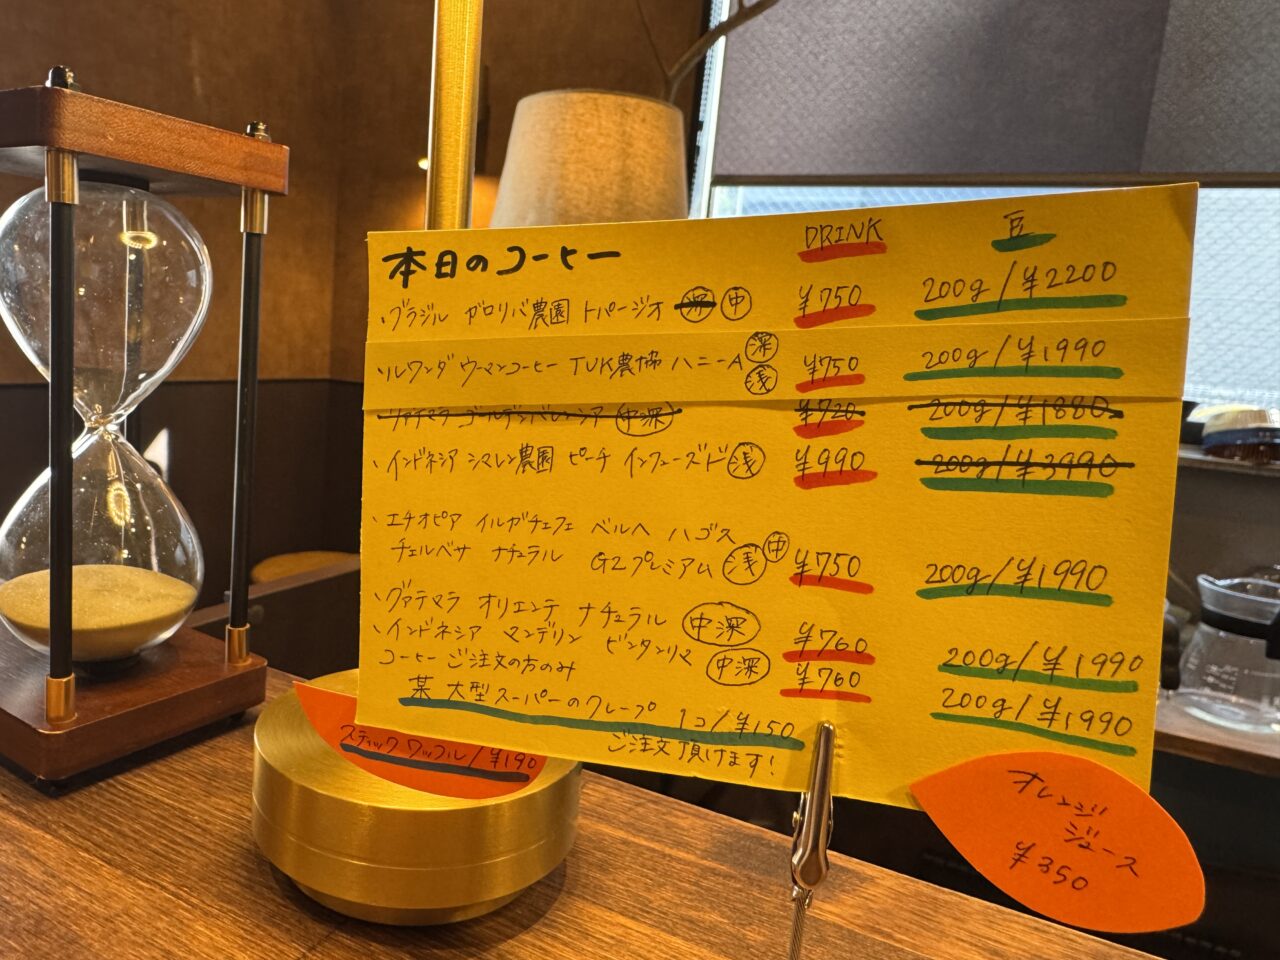 本日のコーヒー DRINK 豆
・ブラジル ガロリバ農園 トパージオ 深 中 ¥750 200g/¥2200
・ルワンダ ウーマンコーヒー TUK農協 ハニーA 深 浅 ¥750 200g/¥1990
・グァテマラ ゴールデンバレンシア 中深 ¥720 200g/¥1880
・インドネシア シマレン農園 ピーチ インフューズド 浅 ¥990 200g/¥3990
・エチオピア イルガチェフェ ベルヘ ハゴス
チェルベサ ナチュラル G2プレミアム 浅 中 ¥750 200g/¥1990
・グァテマラ オリエンテ ナチュラル 中深 ¥760 200g/¥1990
・インドネシア マンデリン ビンタンリマ 中深 ¥760 200g/¥1990
コーヒー ご注文の方のみ
某 大型スーパーのクレープ 1コ/¥150
ご注文頂けます!
スティックワッフル/¥190
オレンジ
ジュース
¥350